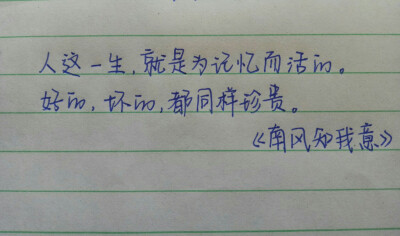 人这一生,就是为记忆而活的。
好的,坏的,都同样珍贵。
《南风知我意》